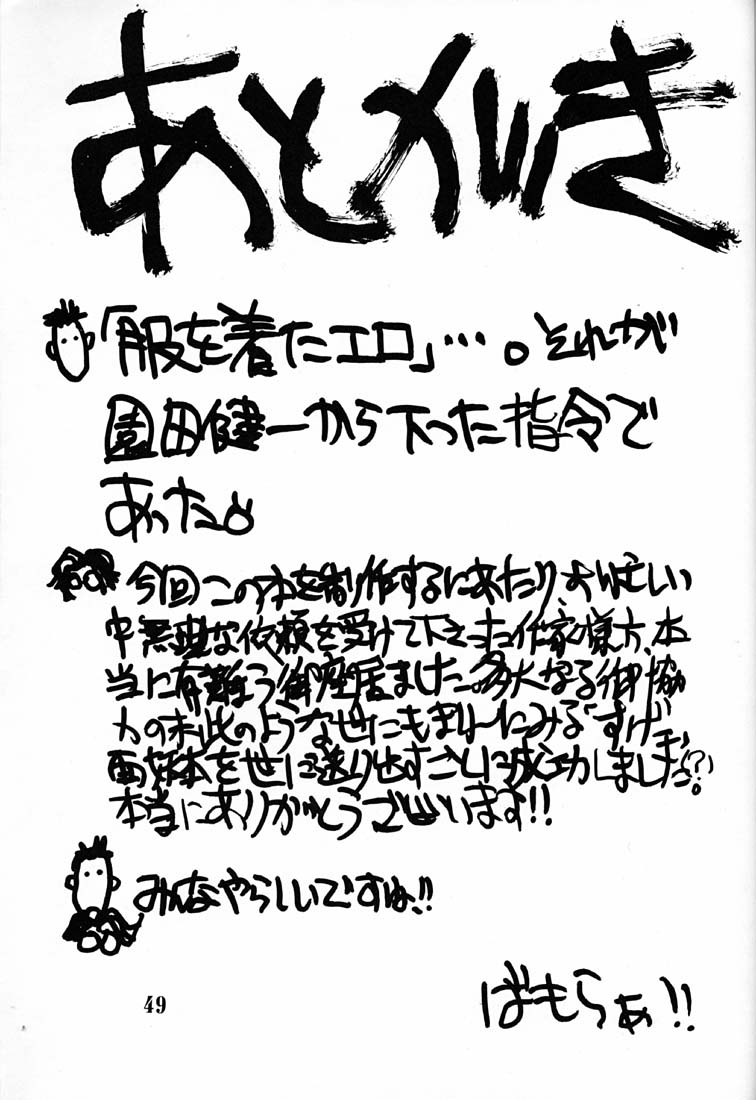 あとがき
「服を着たエロ」…。それが
園田健一から下った指令で
あった。
今回この本を制作するにあたり、お忙しい
中無理な依頼を受けて下さった作家様方、本
当に有難う御座居ました。多大なる御協
力の末此のような世にもまれ〜にみる「すげー
面妖本を世に送り出すことに成功しました(?)
本当にありがとうございます!!
みんなやらしいですね!!
ばもらぁ!!
49